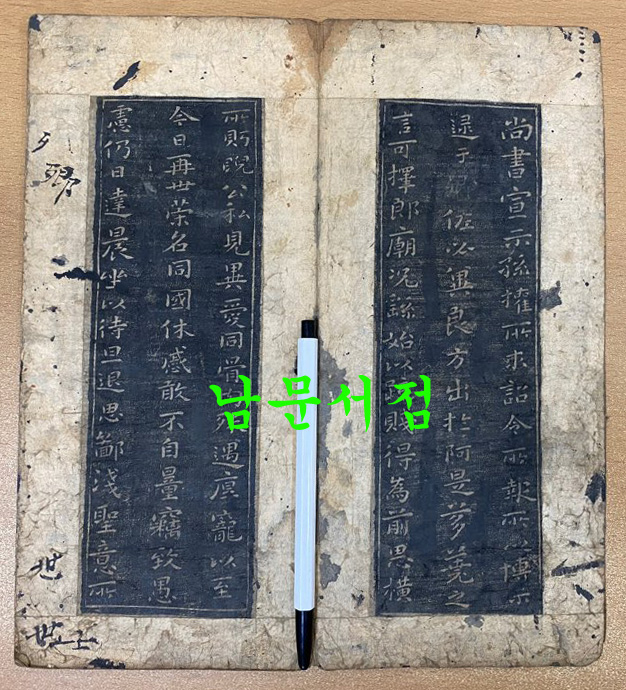 尚書宣示孫權所求詔令所報所以博示
逮于佐必冀良方出於阿是芻蕘之
言可擇郎廟況繇始以疏賤得為前恩橫
所眄睨公私見異愛同骨殊遇厚寵以至
今日再世榮名同國休慼敢不自量竊致愚
慮仍日達晨坐以待旦退思鄙淺聖意所
世
世上
남문서점